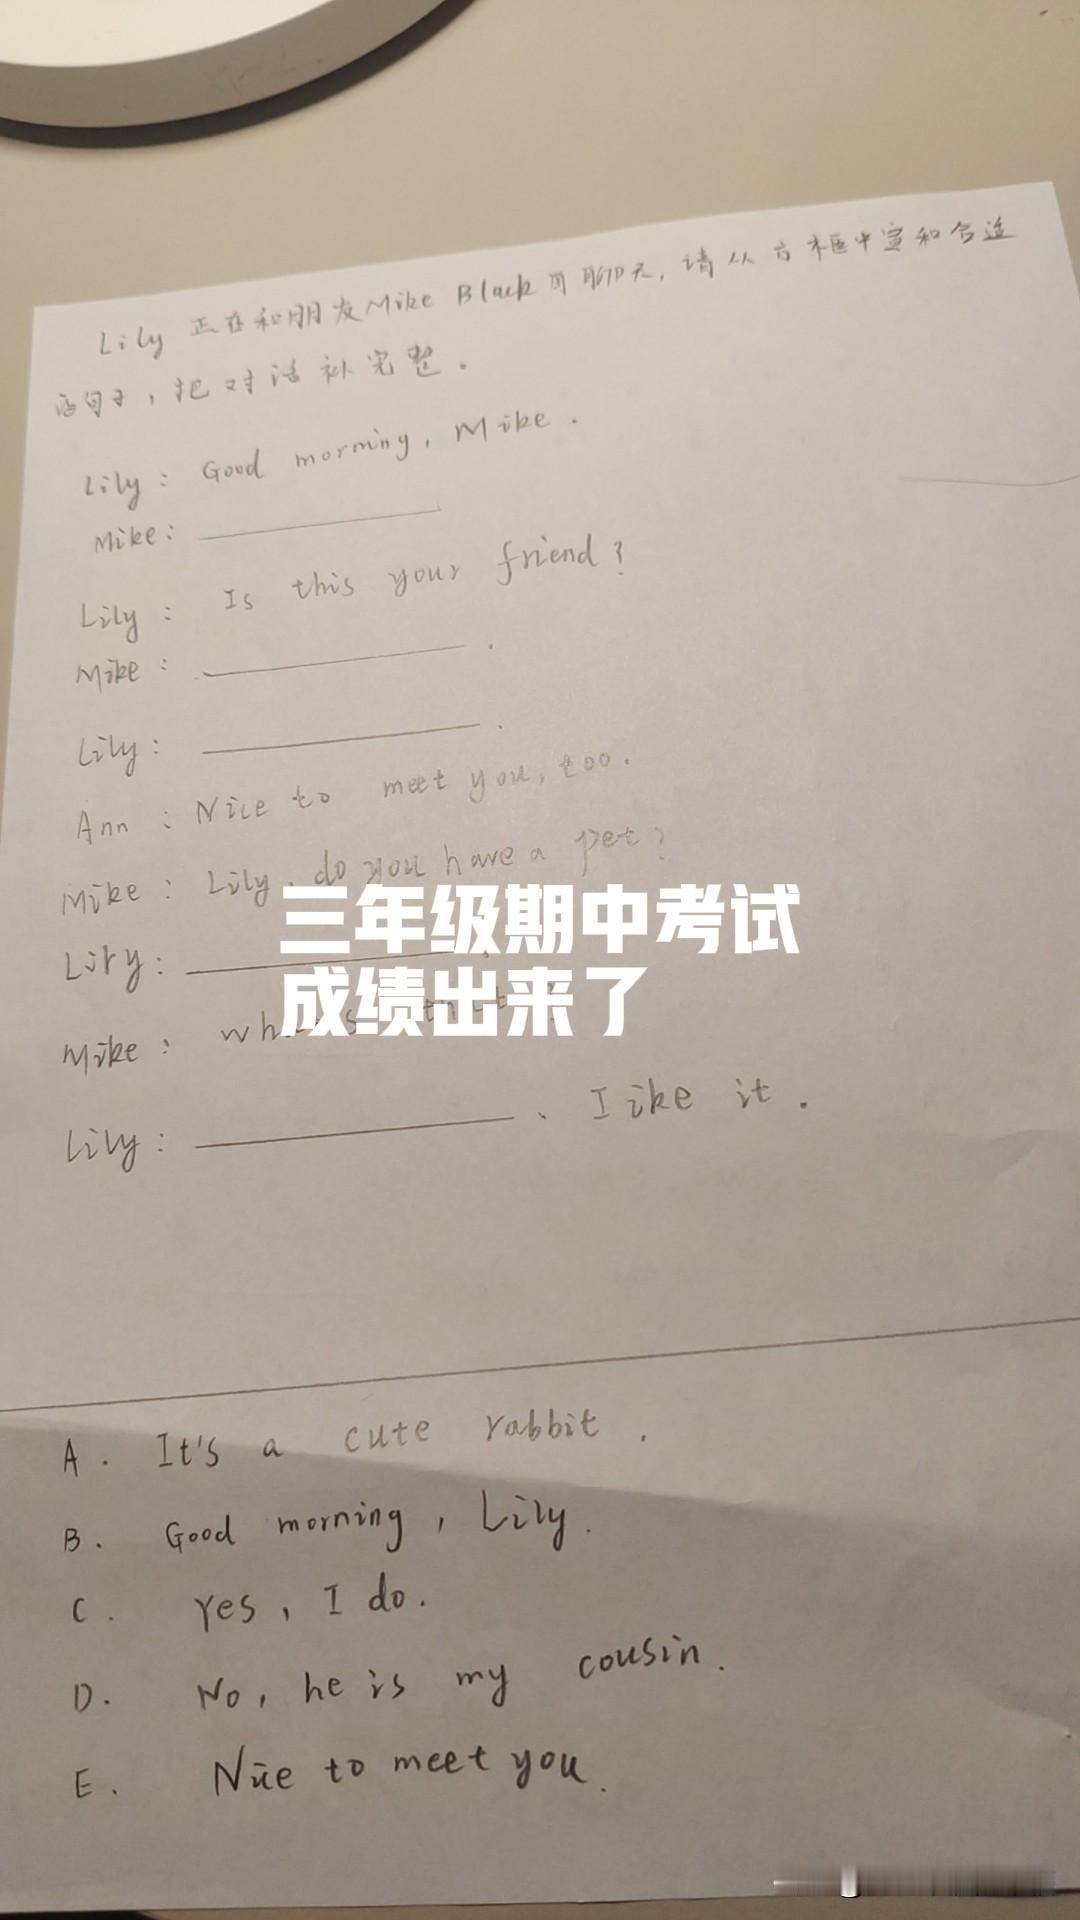 Lily 正在和朋友Mike Black 聊天,请从方框中 合适
句子,把对话补完整。
Lily: Good morning, Mike.
Mike:
Lily: Is this your friend?
Mike: .
Lily: .
Ann: Nice to meet you, too.
Mike: Lily, do you have a pet?
Lily:
三年级期中考试
成绩出来了
Mike:
Lily: . I ike it.
A. It's a cute rabbit.
B. Good morning, Lily.
C. Yes, I do.
D. No, he is my cousin.
E. Nice to meet you.